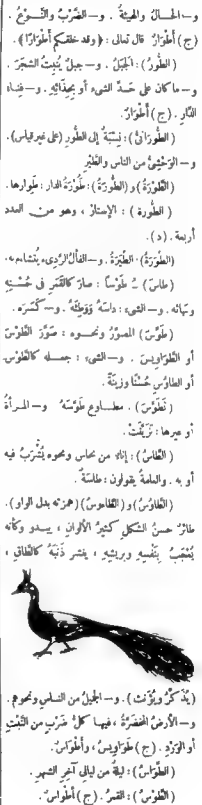 و — الحالُ والهيئةُ . و — الضَّرْبُ والنَّوْعُ .
(ج) أَطْوَارٌ. قال تعالى : ﴿وقد خلقكم أَطْوَارًا﴾ .
( الطُّورُ) : الجَبَلُ . و — جبلٌ يُنبِتُ الشجَرَ .
و — ما كان على حَدِّ الشيء أو بحِذائِه . و — فِناءُ
الدَّارِ . (ج) أَطْوَارٌ.
( الطُّورَانيُّ ) : نِسْبَةٌ إلى الطُّورِ (على غير قياس).
و — الوَحْشيُّ من الناس والطَّيْرِ
( الطَّوْرَةُ) و (الطُّورَةُ) : طَوْرَةُ الدار : طَوَارها .
( الطُّورة ) : الإستارُ ، وهو من العدد
أربعة . (د).
(الطِّوَرَةُ) : الطِّيَرَةُ . و — الفألُ الرَّدِيء يُتشاءم به.
( طَاسَ) ـُ طَوْسًا : صارَ كالقَمَرِ في حُسْنِه
وبَهائه . و — الشيءَ : داسَهُ وَوَطِئَهُ . و — كَسَّرَه .
( طَوَّسَ ) المصوِّرُ ونحوه : صَوَّرَ الطَّوْسَ
أو الطَّوَاوِيسَ . و — الشيءَ : جعله كالطَّوْسِ
أو الطاوُسِ حُسْنًا وزِينَةً .
( تَطَوَّسَ ) . مطاوع طَوَّسَهُ و — المرأةُ
أو غيرها : تَزَيَّنَتْ .
( الطَّاسُ) : إناءٌ من نحاس ونحوه يُشْرَبُ فيه
أو به . والعامةُ يقولون : طاسَةٌ .
( الطَّاؤُسُ ) و ( الطَّاءوسُ ) (همزته بدل الواو).
طائرٌ حسنُ الشكلِ كثيرُ الألوانِ ، يبدو وكأنه
يُعْجَبُ بِنَفْسِهِ وبريشِهِ ، ينشر ذَنَبَهُ كالطاقِ ،
(يُذَكَّرُ ويؤنث). و — الجميلُ من الناس ونحوهم .
و — الأرضُ المُخْضَرَّةُ ، فيها كلُّ ضَرْبٍ من النَّبْتِ
أو الوَرْدِ . (ج) طَوَاوِيسُ ، وأَطْوَاسٌ .
( الطَّوَّاسُ ) : ليلةٌ من ليالي آخر الشهر .
( الطَّوْسُ ) : القمرُ . (ج) أَطْوَاسٌ .